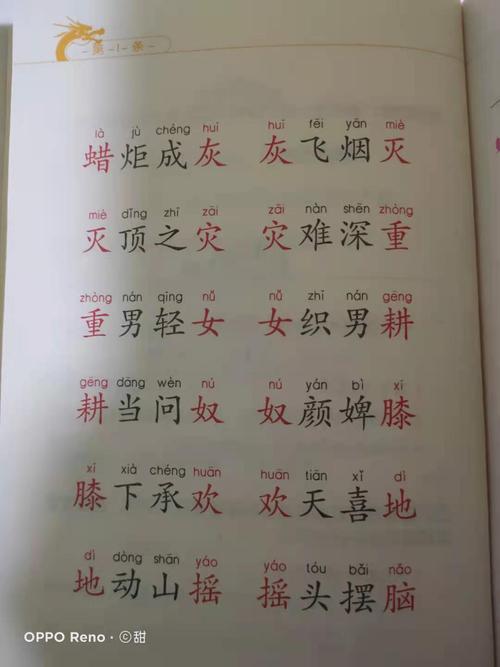 第1条
là jù chéng huī huī fēi yān miè
蜡炬成灰 灰飞烟灭
miè dǐng zhī zāi zāi nàn shēn zhòng
灭顶之灾 灾难深重
zhòng nán qīng nǚ nǚ zhī nán gēng
重男轻女 女织男耕
gēng dāng wèn nú nú yán bì xī
耕当问奴 奴颜婢膝
xī xià chéng huān huān tiān xǐ dì
膝下承欢 欢天喜地
dì dòng shān yáo yáo tóu bǎi nǎo
地动山摇 摇头摆脑
OPPO Reno · ©甜